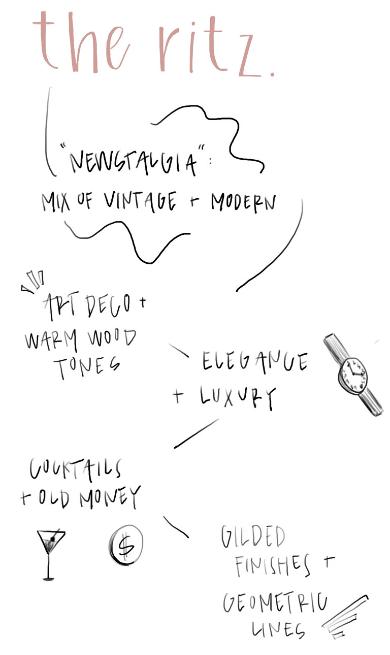 the ritz.
"NEWSTALGIA":
MIX OF VINTAGE + MODERN
ART DECO +
WARM WOOD
TONES
ELEGANCE
+ LUXURY
COCKTAILS
+ OLD MONEY
$
GILDED
FINISHES +
GEOMETRIC
LINES